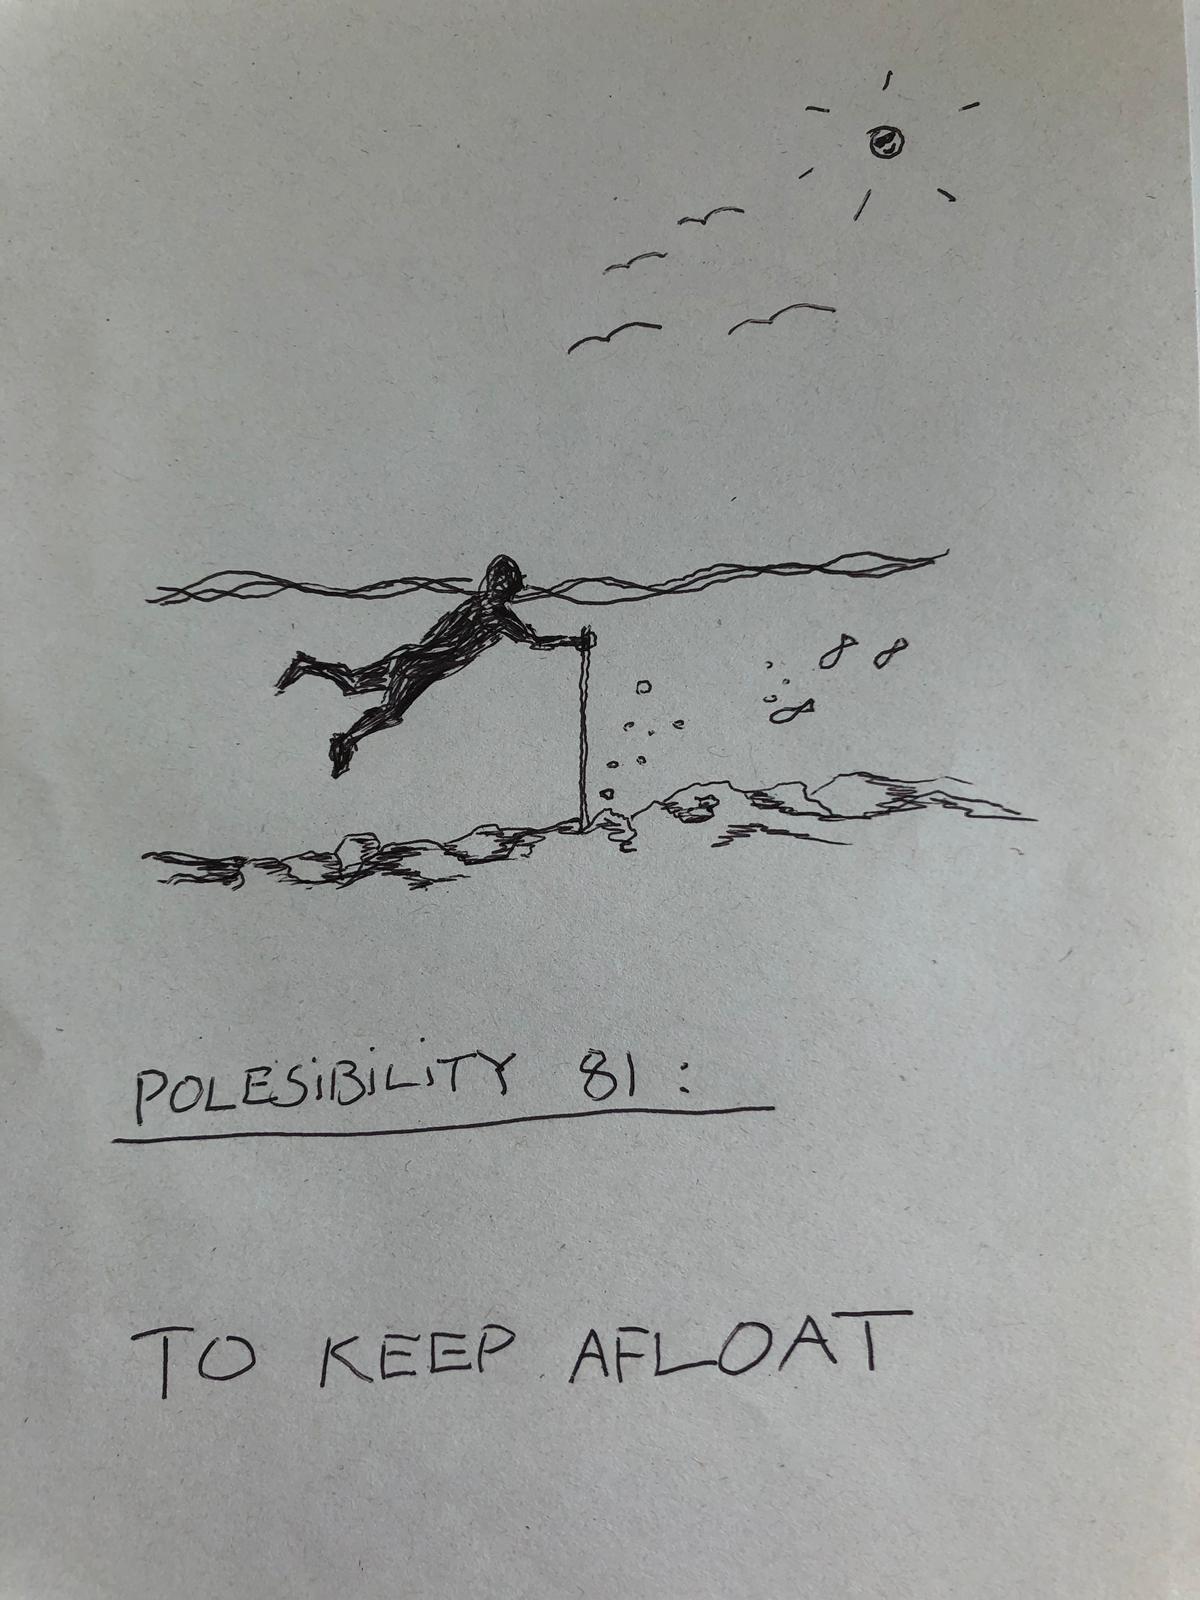 POLESiBiLiTY 81 :
TO KEEP AFLOAT